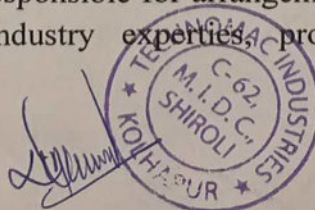 esponsible for arrangem
ndustry experties, pro
★ TECHNOMAC INDUSTRIES ★
KOLHAPUR
C-62,
M. I. D. C.,
SHIROLI